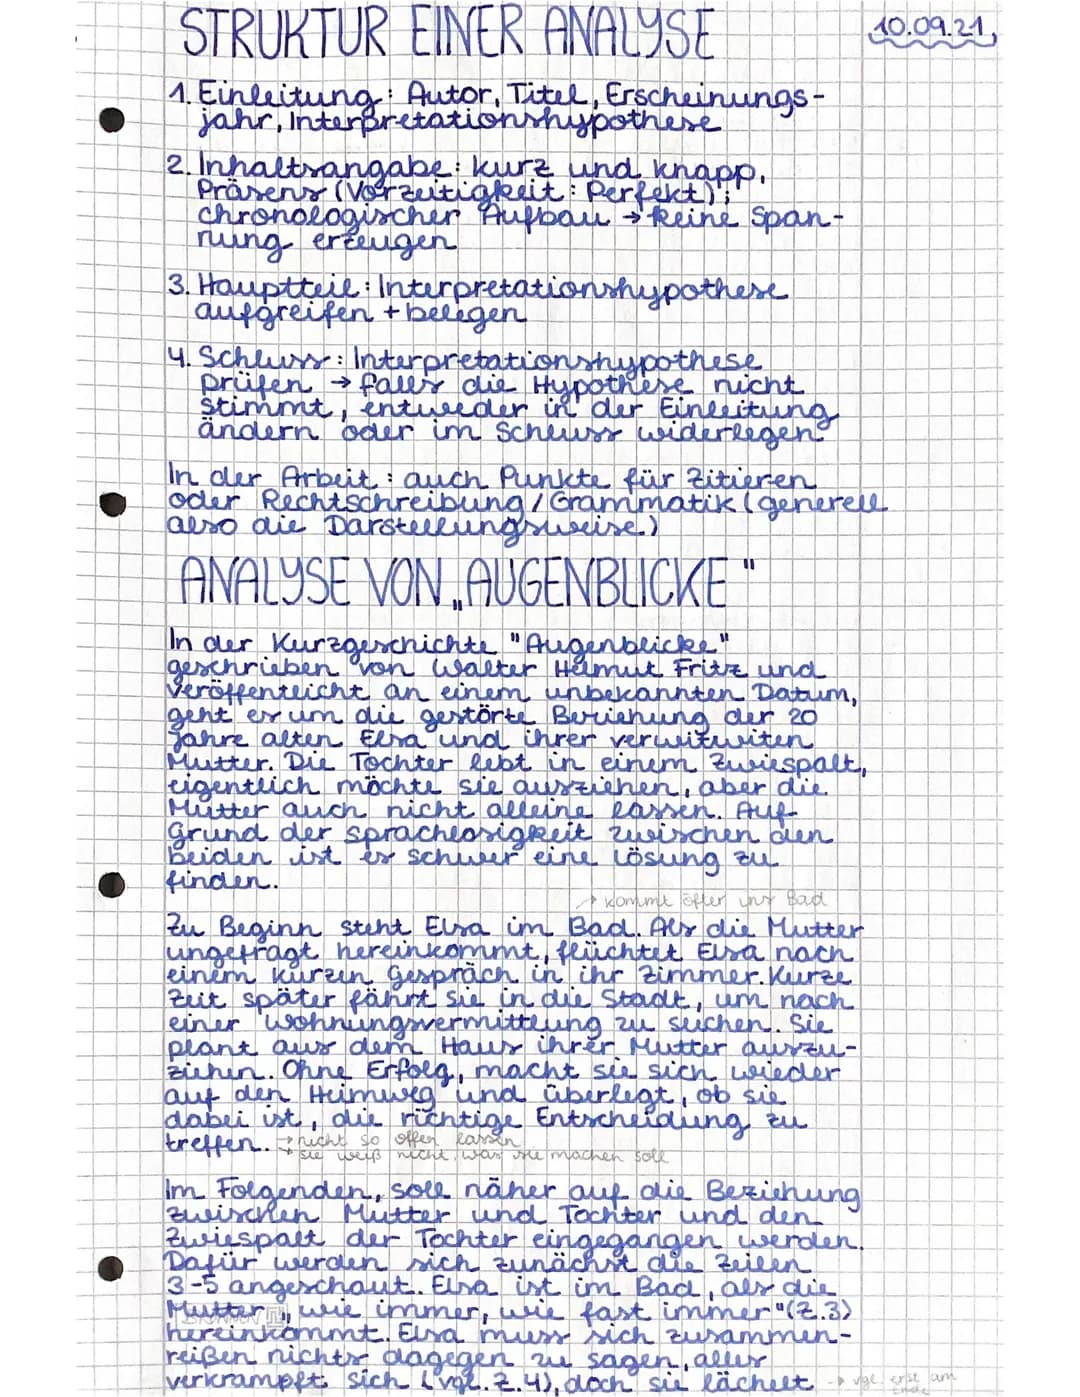 STRUKTUR EINER ANALYSE
10.09.21
1. Einleitung: Autor, Titel, Erscheinungs-
jahr, Interpretationshypothese
2. Inhaltsangabe: kurz und knapp,
Präsens (Vorzeitigkeit: Perfekt);
chronologischer Aufbau → keine Span-
nung erzeugen
3. Hauptteil: Interpretationshypothese
aufgreifen + belegen
4. Schluss: Interpretationshypothese
prüfen → falls die Hypothese nicht
stimmt, entweder in der Einleitung
ändern oder im Schluss widerlegen
In der Arbeit: auch Punkte für Zitieren
oder Rechtschreibung/Grammatik (generell
also die Darstellungsweise)
ANALYSE VON „AUGENBLICKE"
In der Kurzgeschichte "Augenblicke"
geschrieben von Walter Helmut Fritz und
veröffentlicht an einem unbekannten Datum,
geht es um die gestörte Beziehung der 20
Jahre alten Elsa und ihrer verwitwiten
Mutter. Die Tochter lebt in einem Zwiespalt,
eigentlich möchte sie ausziehen, aber die
Mutter auch nicht alleine lassen. Auf-
grund der sprachlosigkeit zwischen den
beiden ist es schwer eine Lösung zu
finden.
→ kommt öfter ins Bad
Zu Beginn steht Elsa im Bad. Als die Mutter
ungefragt hereinkommt, flüchtet Elsa nach
einem kurzen Gespräch in ihr Zimmer. Kurze
Zeit später fährt sie in die Stadt, um nach
einer Wohnungsvermittlung zu suchen. Sie
plant aus dem Haus ihrer Mutter auszu-
ziehen. Ohne Erfolg, macht sie sich wieder
auf den Heimweg und überlegt, ob sie
dabei ist, die richtige Entscheidung zu
treffen. → nicht so offen lassen
→ sie weiß nicht, was sie machen soll
Im Folgenden, soll näher auf die Beziehung
zwischen Mutter und Tochter und den
Zwiespalt der Tochter eingegangen werden.
Dafür werden sich zunächst die Zeilen
3-5 angeschaut. Elsa ist im Bad, als die
Mutter „wie immer, wie fast immer" (Z.3)
hereinkommt. Elsa muss sich zusammen-
reißen nichts dagegen zu sagen, alles
verkrampft sich (vgl. Z.4), doch sie lächelt → vgl. erst am
Ende